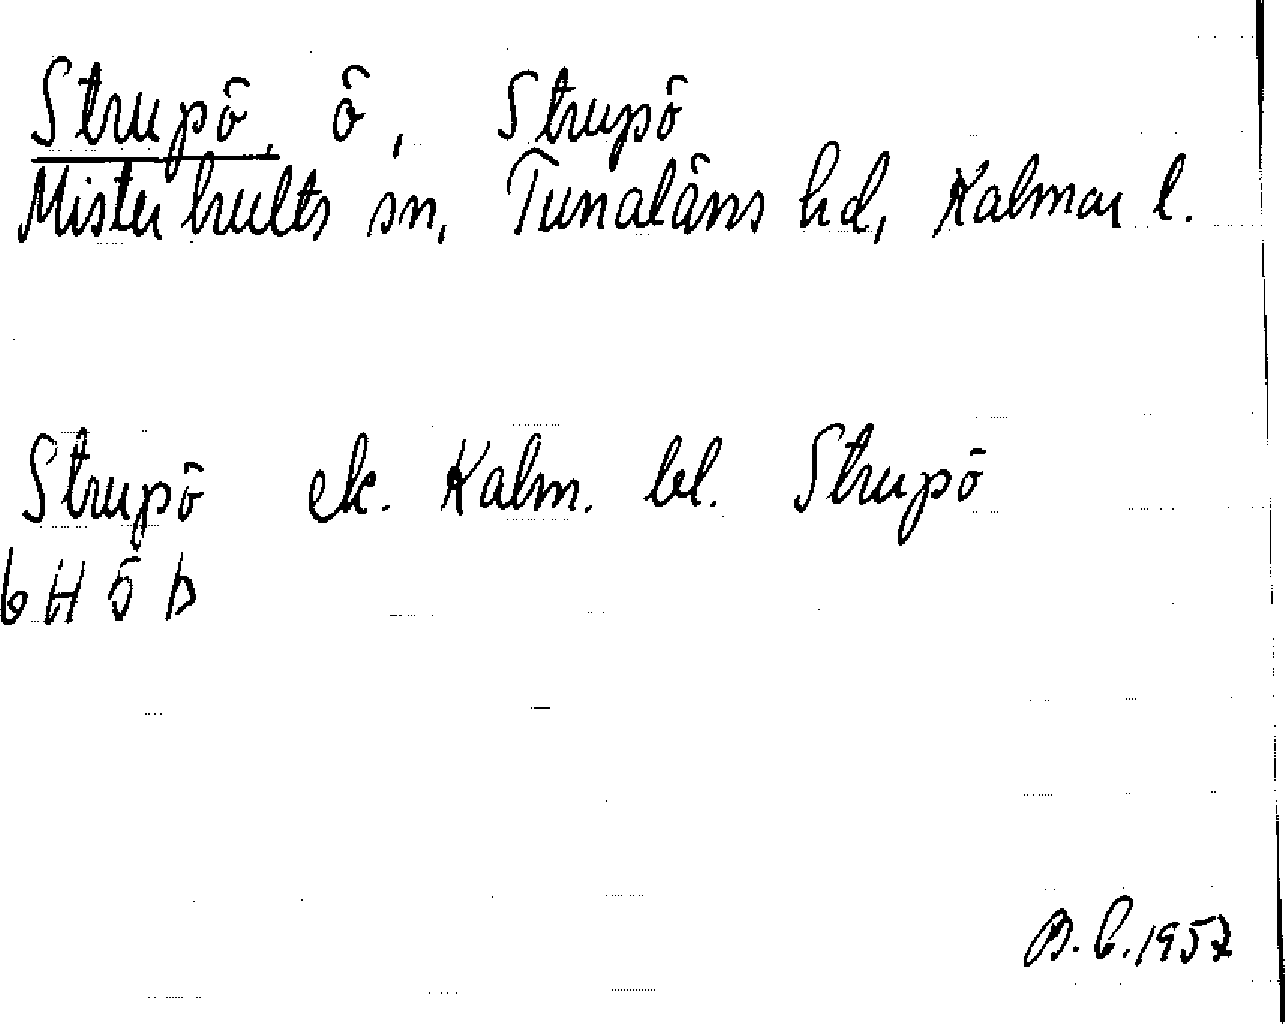 Strupö, ö, Strupö
Misterhults sn, Tunaläns hd, Kalmar l.
Strupö ek. Kalm. bl. Strupö
6 H Ö b
B. C. 1957